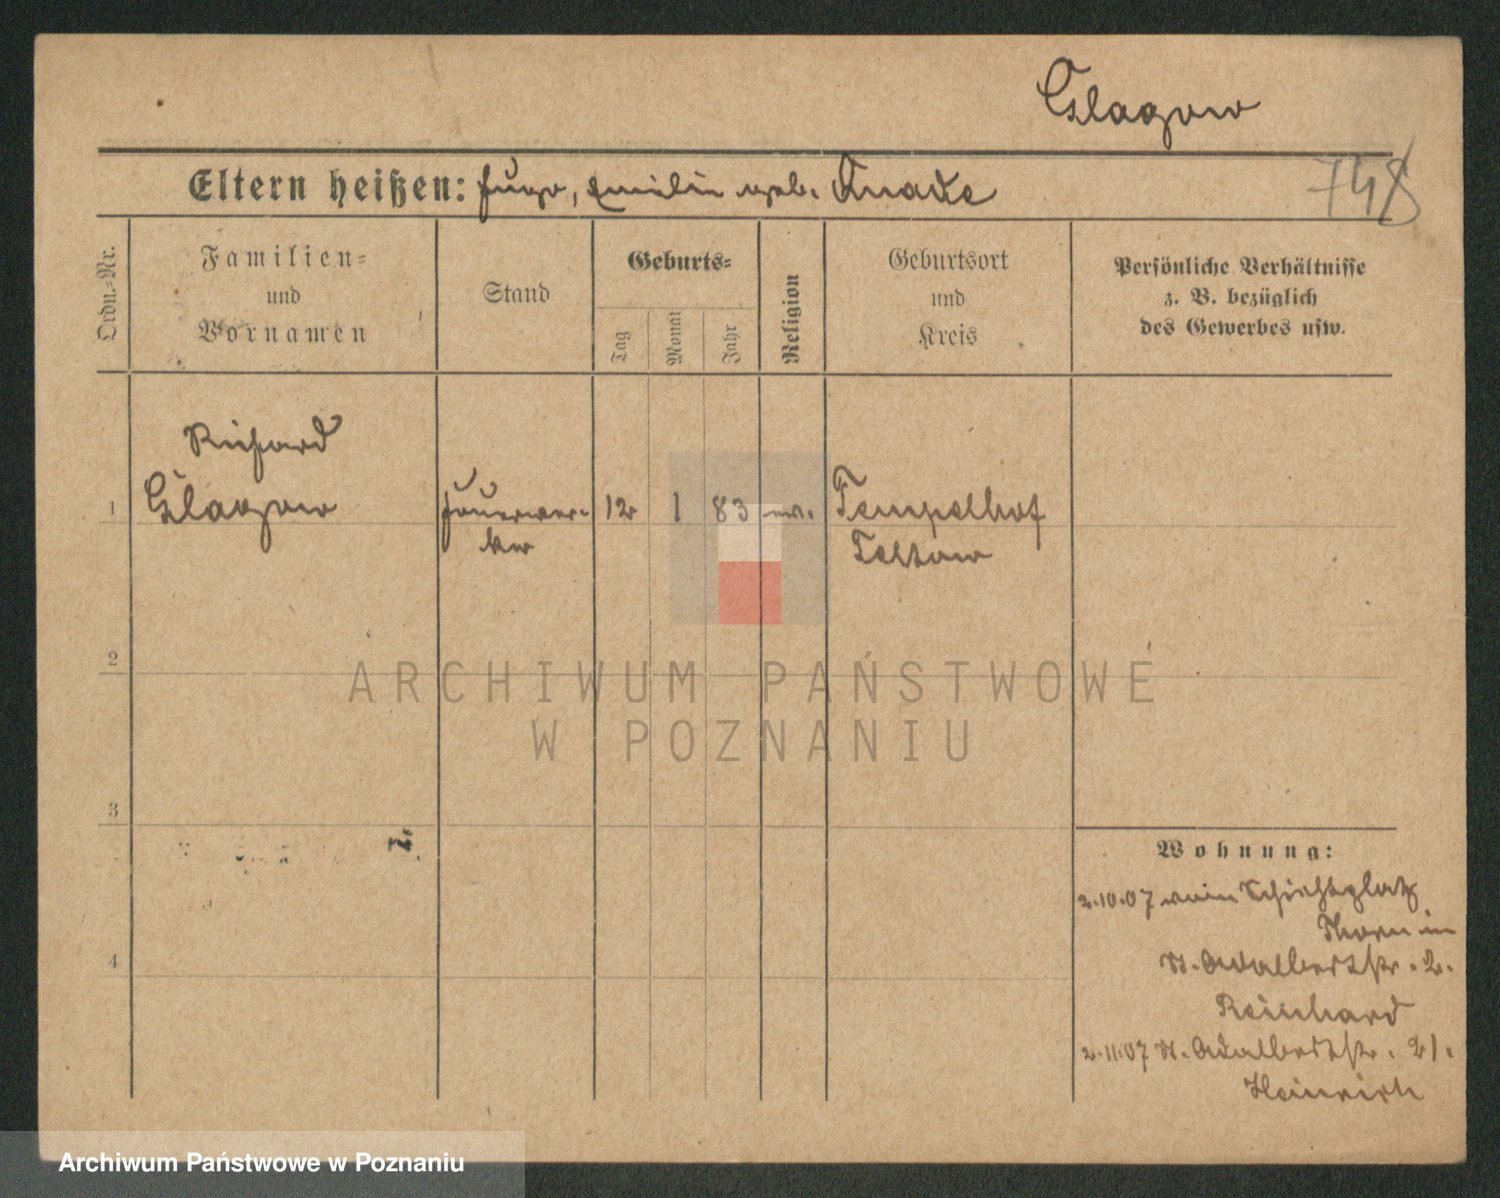 Glagow
748
Eltern heißen: Hugo, Emilie geb. Knacke
Ordn.-Nr.
Familien-
und
Vornamen
Stand
Geburts-
Tag
Monat
Jahr
Religion
Geburtsort
und
Kreis
Persönliche Verhältnisse
z. B. bezüglich
des Gewerbes usw.
Richard
1 Glagow Feuerwer- 12 1 83 ev. Tempelhof
ker Teltow
2
ARCHIWUM PAŃSTWOWE
W POZNANIU
3
Wohnung:
2.10.07 vom Schießplatz
Thorn in
4 St. Adalbertstr. 2.
Reinhard
2.11.07 St. Adalbertstr. 21.
Heinrich
Archiwum Państwowe w Poznaniu